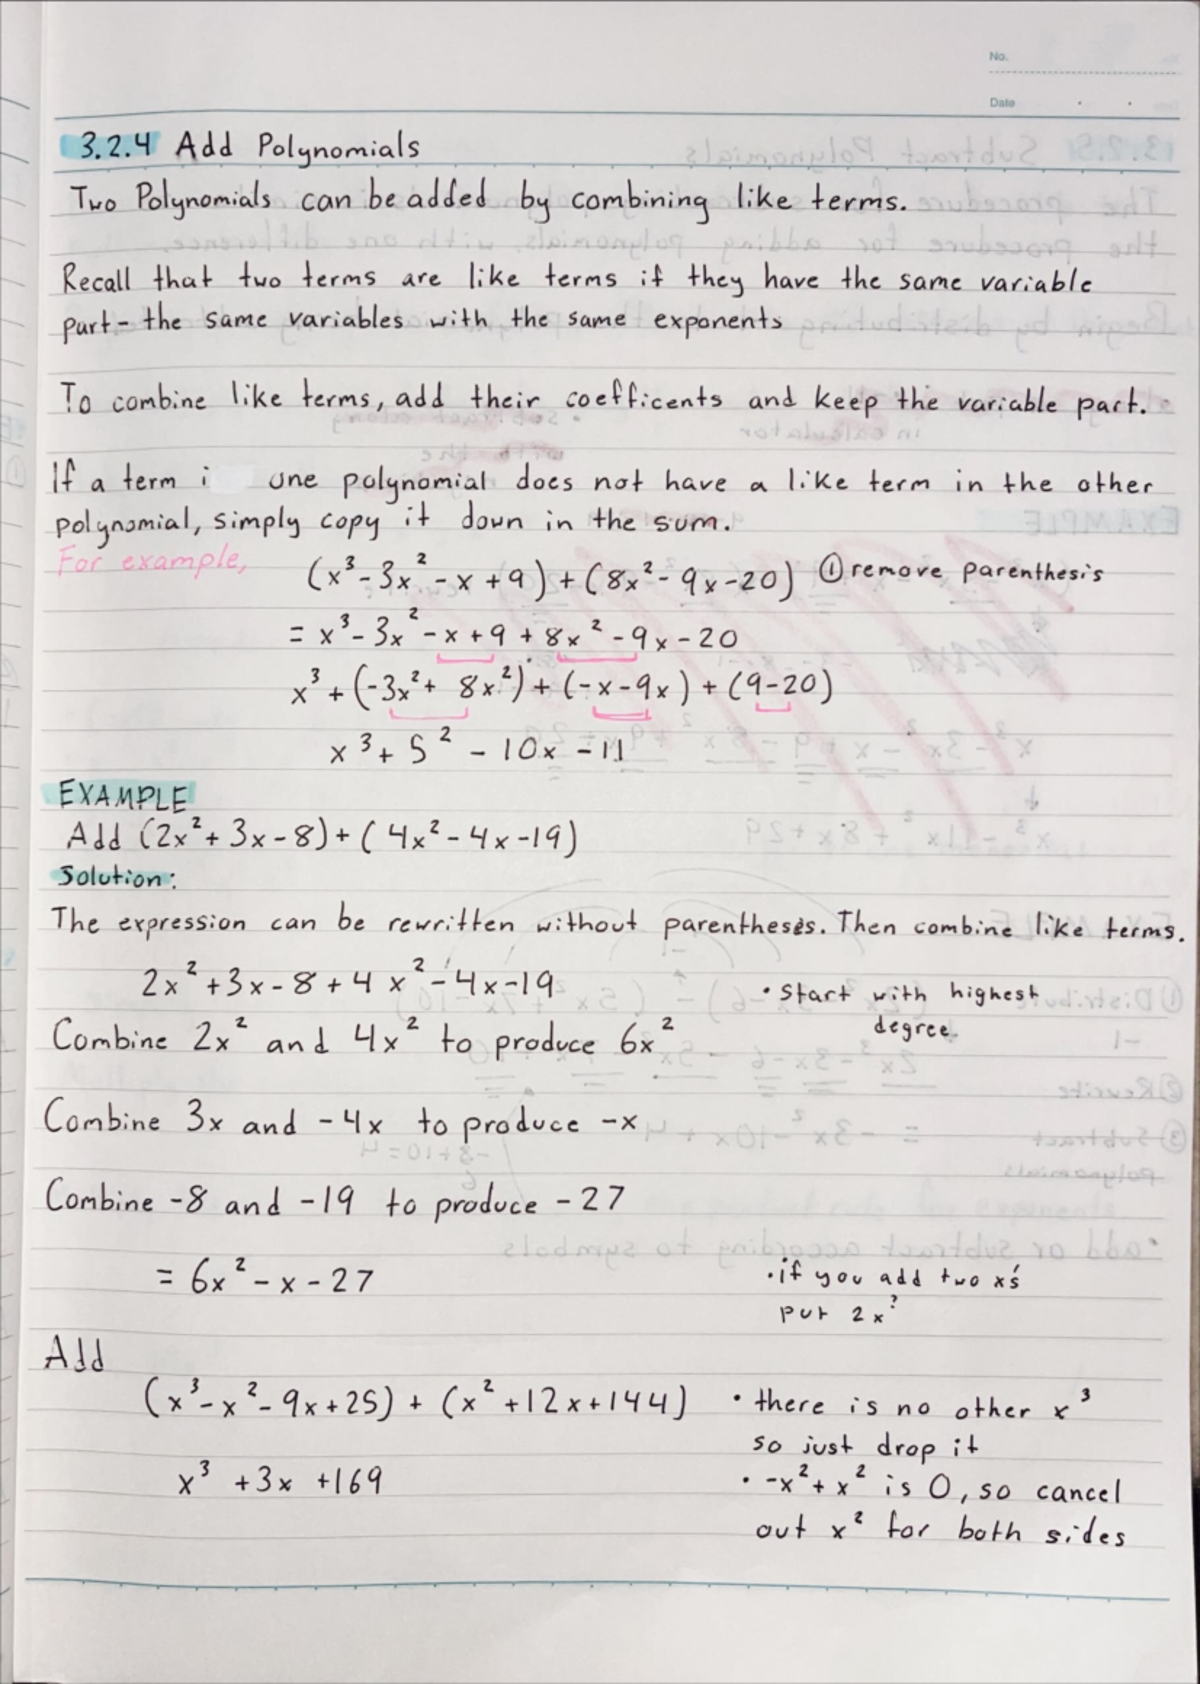 No.
Date
3.2.4 Add Polynomials
Two Polynomials can be added by combining like terms.
Recall that two terms are like terms if they have the same variable
part - the same variables with the same exponents
To combine like terms, add their coefficents and keep the variable part.
If a term i one polynomial does not have a like term in the other
polynomial, simply copy it down in the sum.
For example,
(x³ - 3x² - x + 9) + (8x² - 9x - 20) ① remove parenthesis
= x³ - 3x² - x + 9 + 8x² - 9x - 20
x³ + (-3x² + 8x²) + (-x - 9x) + (9 - 20)
x³ + 5² - 10x - 11
EXAMPLE
Add (2x² + 3x - 8) + (4x² - 4x - 19)
Solution:
The expression can be rewritten without parentheses. Then combine like terms.
2x² + 3x - 8 + 4x² - 4x - 19
• Start with highest
degree.
Combine 2x² and 4x² to produce 6x²
Combine 3x and -4x to produce -x
Combine -8 and -19 to produce -27
= 6x² - x - 27
• if you add two x's
put 2x?
Add
(x³ - x² - 9x + 25) + (x² + 12x + 144)
x³ + 3x + 169
• there is no other x³
so just drop it
• -x² + x² is 0, so cancel
out x² for both sides